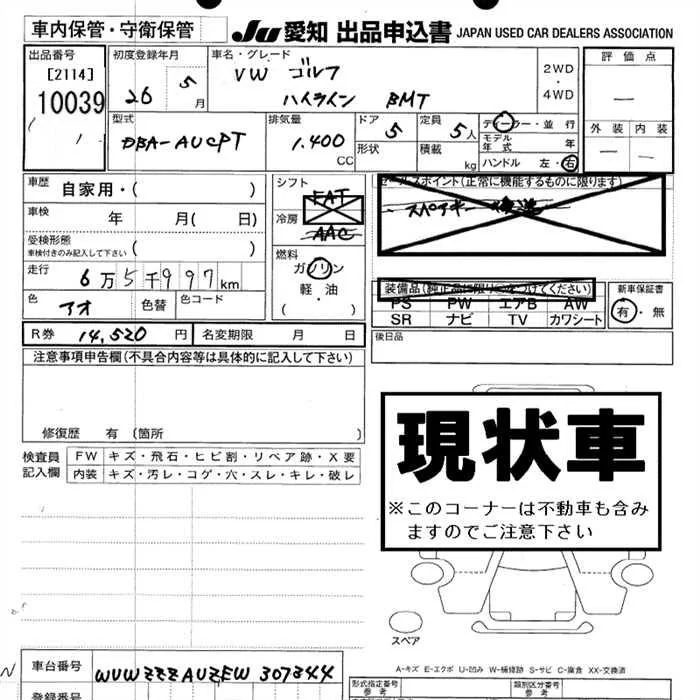 車内保管・守衛保管
JU 愛知 出品申込書 JAPAN USED CAR DEALERS ASSOCIATION
出品番号
[2114]
10039
初度登録年月
26 5月
車名・グレード
VW ゴルフ
ハイライン BMT
2WD
・
4WD
評価点
—
外装 内装
— —
型式
DBA-AUCPT
排気量
1.400 CC
ドア
5
形状
定員
5人
積載 kg
ディーラー・並行
モデル年式 年
ハンドル 左・右
車歴 自家用・( )
車検 年 月( 日)
受検形態
車検付きのみ記入して下さい ( )
走行 6万5千997km
色 アオ 色替 色コード
シフト
FAT
冷房
AAC
燃料
ガソリン
軽・油
( )
セールスポイント(正常に機能するものに限ります)
装備品(純正品に限り○をつけてください)
PS PW エアB AW
SR ナビ TV カワシート
新車保証書
有・無
R券 14,520 円 名変期限 月 日
後日品
注意事項申告欄(不具合内容等は具体的に記入して下さい)
修復歴 有 (箇所 )
検査員記入欄
FW キズ・飛石・ヒビ割・リペア跡・X要
内装 キズ・汚レ・コゲ・穴・スレ・キレ・破レ
現状車
※このコーナーは不動車も含み
ますのでご注意下さい
スペア
A-キズ E-エクボ U-凹み W-補修跡 S-サビ C-腐食 XX-交換済
N
車台番号 WVWZZZAUZEW 307344
登録番号
形式指定番号
参考
類別区分番号
参考